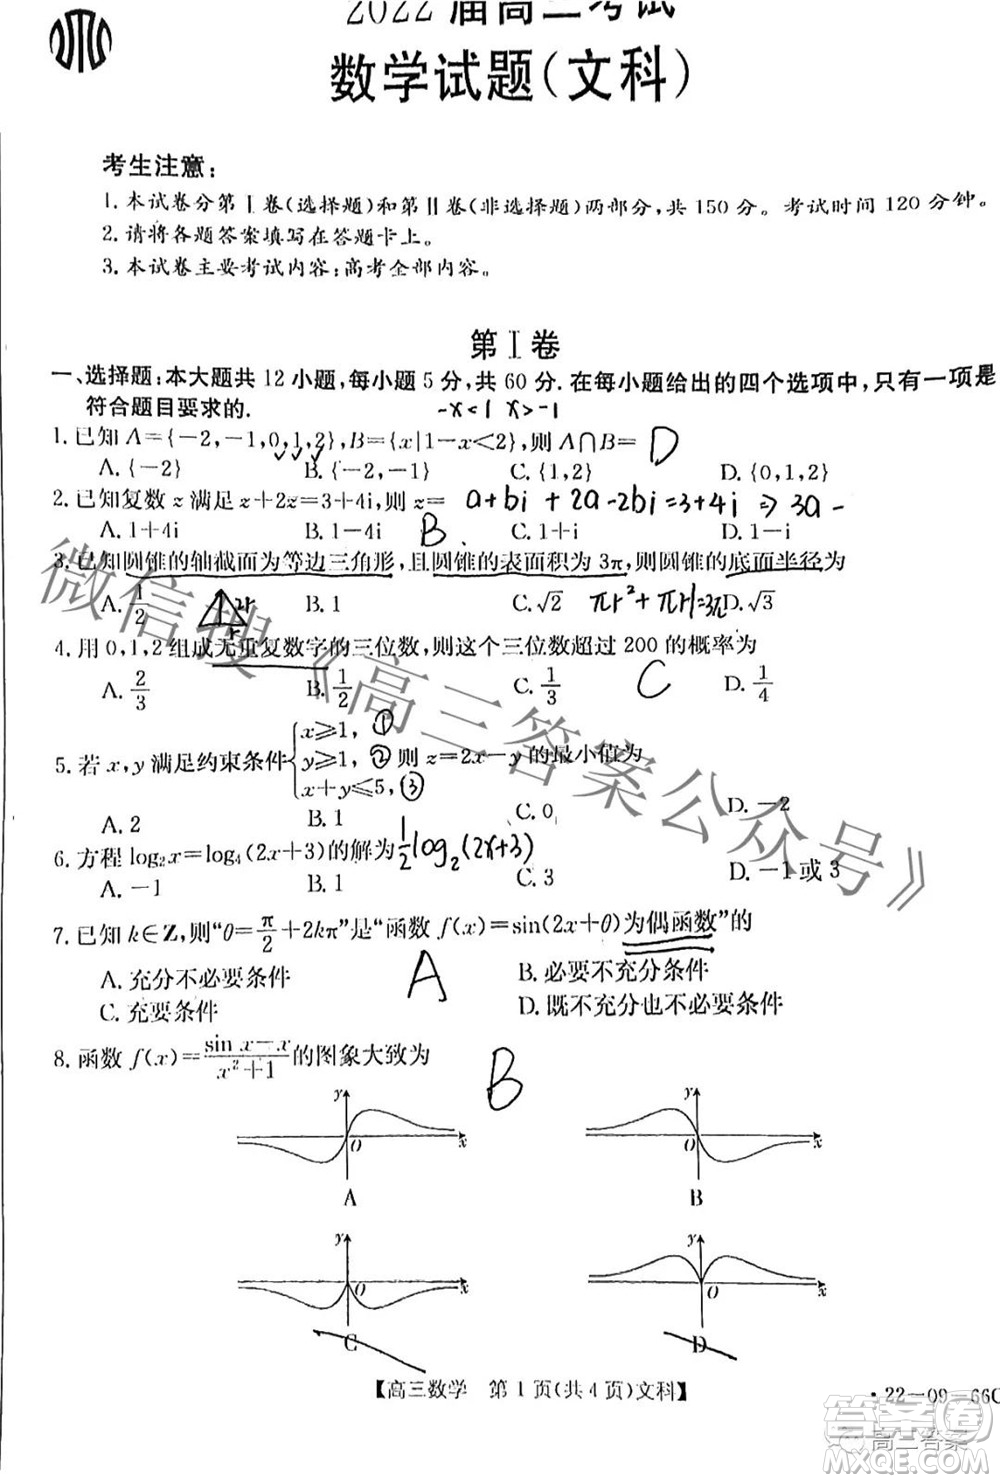 2022届高三考试
数学试题(文科)
考生注意:
1.本试卷分第Ⅰ卷(选择题)和第Ⅱ卷(非选择题)两部分,共 150 分。考试时间 120 分钟。
2.请将各题答案填写在答题卡上。
3.本试卷主要考试内容:高考全部内容。
第Ⅰ卷
一、选择题:本大题共 12 小题,每小题 5 分,共 60 分. 在每小题给出的四个选项中,只有一项是
符合题目要求的.
-x<1 x>-1
1.已知 A={-2,-1,0,1,2},B={x|1-x<2},则 A∩B= D
A.{-2} B.{-2,-1} C.{1,2} D.{0,1,2}
2.已知复数 z 满足 z+2z̄=3+4i,则 z= a+bi+2a-2bi=3+4i⇒3a-
A.1+4i B.1-4i B C.1+i D.1-i
3.已知圆锥的轴截面为等边三角形,且圆锥的表面积为 3π,则圆锥的底面半径为
A.1/2 2r r B.1 C.√2 πr²+πrl=3π D.√3
4.用 0,1,2 组成无重复数字的三位数,则这个三位数超过 200 的概率为
A.2/3 B.1/2 C.1/3 C D.1/4
5.若 x,y 满足约束条件{x≥1, ① y≥1, ② x+y≤5, ③ 则 z=2x-y 的最小值为
A.2 B.1 C.0 D.-2
6.方程 log₂x=log₄(2x+3)的解为 1/2 log₂(2x+3)
A.-1 B.1 C.3 D.-1 或 3
7.已知 k∈Z,则“θ=π/2+2kπ”是“函数 f(x)=sin(2x+θ)为偶函数”的
A.充分不必要条件 A B.必要不充分条件
C.充要条件 D.既不充分也不必要条件
8.函数 f(x)=(sin x-x)/(x²+1)的图象大致为 B
y O x
A
y O x
B
y O x
C
y O x
D
【高三数学 第 1 页(共 4 页)文科】
·22-09-66C
微信搜《高三答案公众号》
答案圈
高三答案